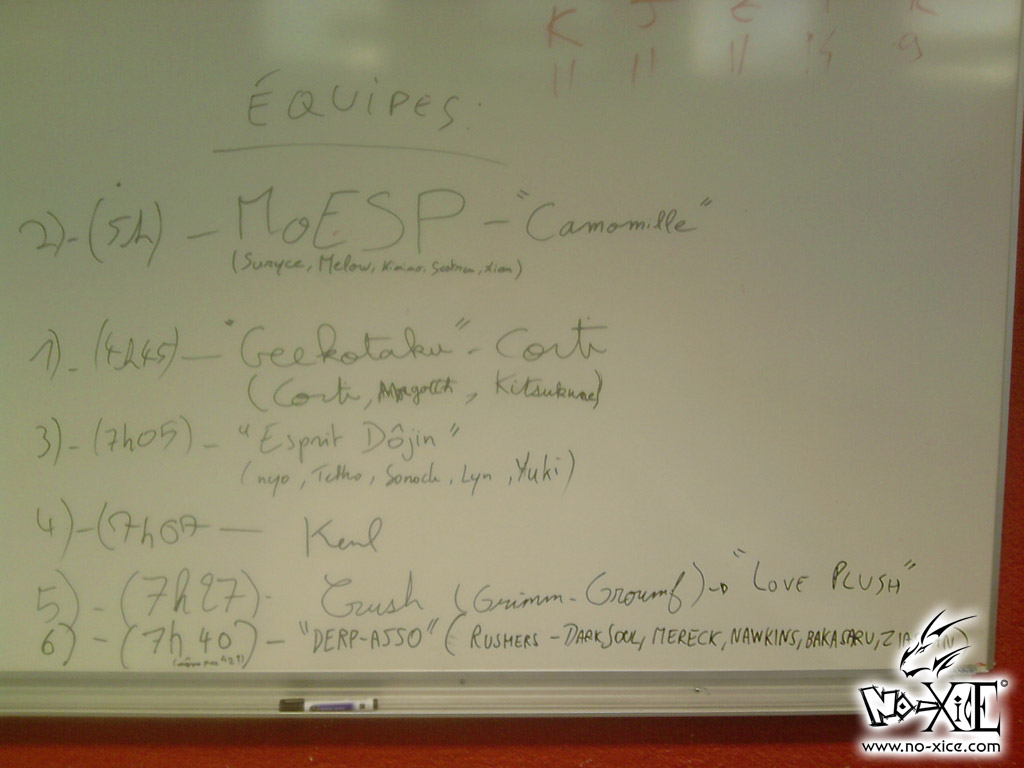 K J E K
11 11 11 9
ÉQUIPES.
2)-(5h) - MoESP - "Camomille"
(Sunyce, Melow,
1)-(4h45) - "Geekotaku" - Corti
(Corti, Kitsukune)
3)-(7h05) - "Esprit Dôjin"
(nyo, Lyn, Yuki)
4)-(7h07 -
5)-(7h27)- Crush (Grimm-Groumf) "LOVE PLUSH"
6)-(7h40)-"DERP-ASSO" (RUSHERS-DARKSOUL, MERECK, NAWKINS, BAKASARU,
NO-XICE©
www.no-xice.com